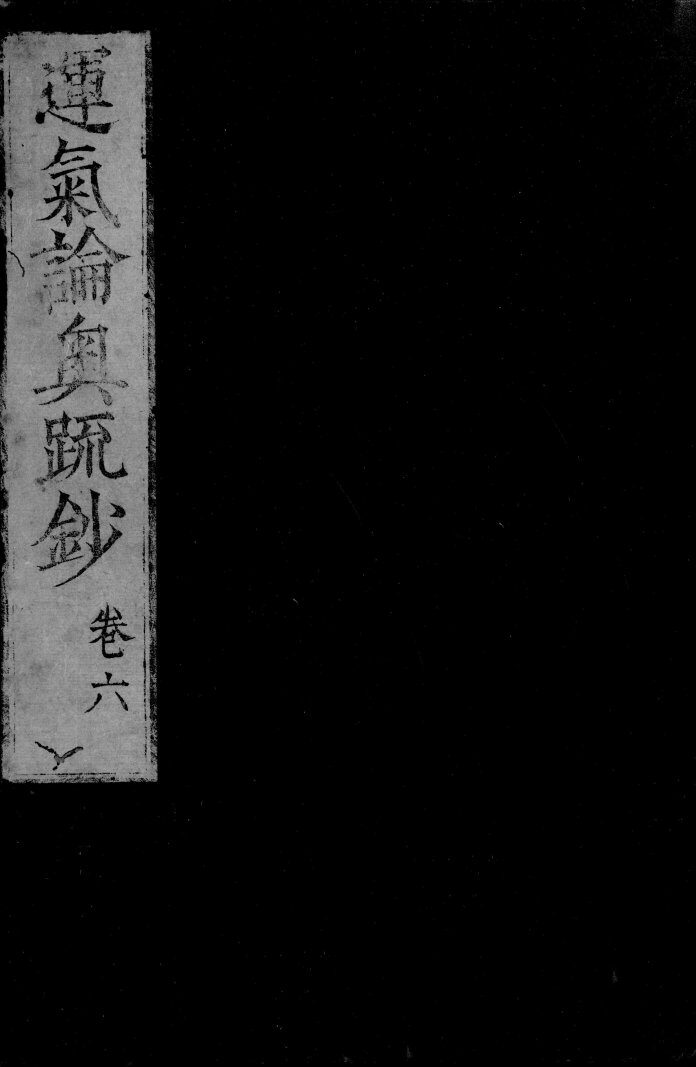 運氣論奥疏鈔
卷六